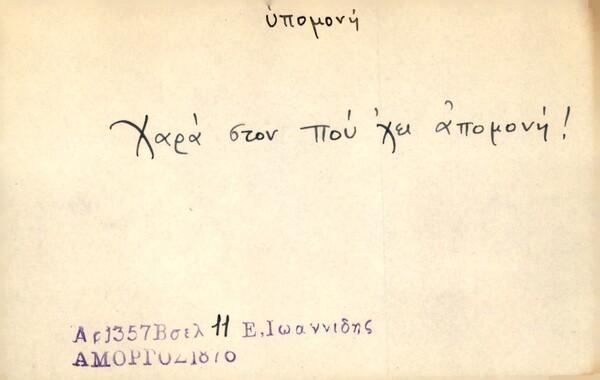 ὑπομονή
Χαρὰ στον πού 'χει ἀπομονή!
Αρ1357Βσελ 11 Ε.Ιωαννιδης
ΑΜΟΡΓΟΣ1876